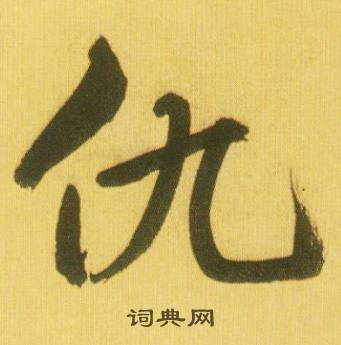 仇
词典网